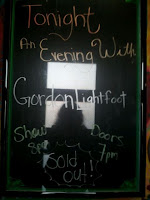 Tonight
An Evening With
Gordon Lightfoot
Show Doors
8pm 7pm
Sold
out!